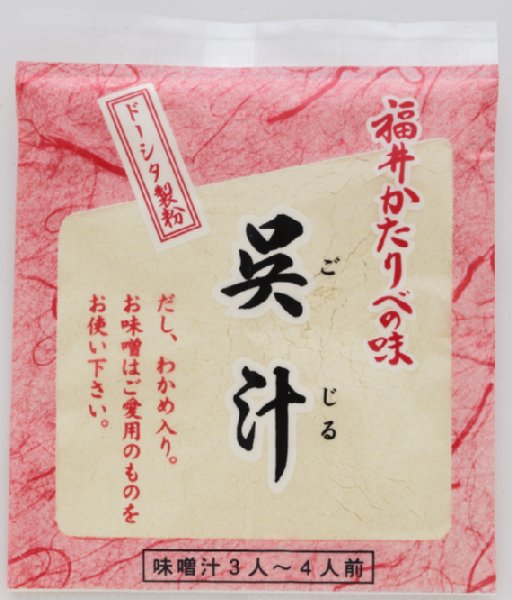 福井かたりべの味
呉汁
ごじる
ドーシタ製粉
だし、わかめ入り。
お味噌はご愛用のものを
お使い下さい。
味噌汁3人～4人前